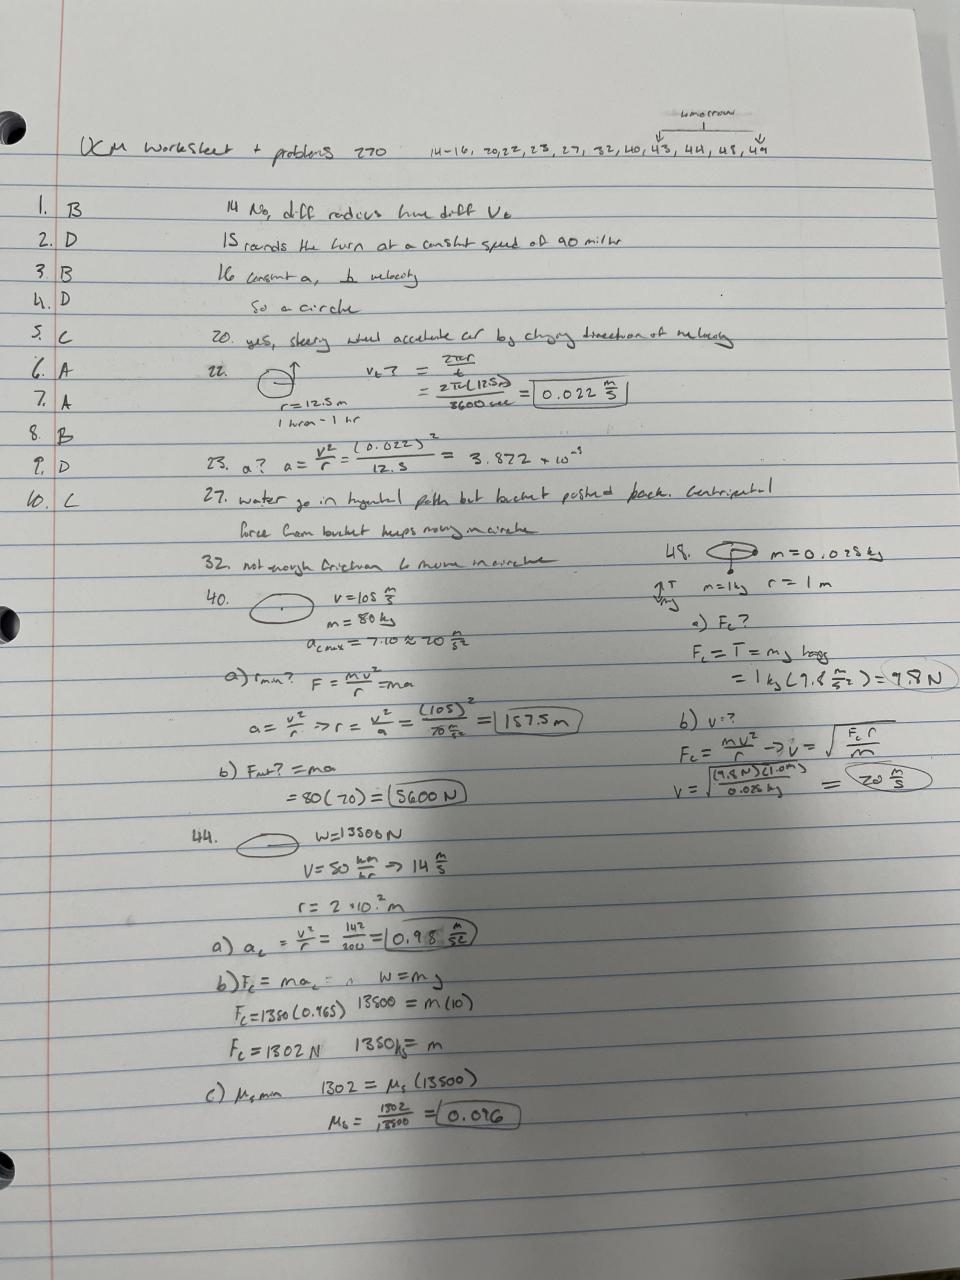 tomorrow
UCM Worksheet + problems 270 14-16, 20, 22, 23, 27, 32, 40, 43, 44, 48, 49
1. B
2. D
3. B
4. D
5. C
6. A
7. A
8. B
9. D
10. C
14 No, diff radius have diff Vt
15 rounds the turn at a constnt speed of 90 mi/hr
16 constnt a, ⊥ velocity
So a circle
20. yes, steering wheel accelerate car by changing direction of velocity
22. vt? = 2πr/t
= 2π(12.5m)/3600 sec = 0.022 m/s
r = 12.5m
1 hr
23. a? a = v²/r = (0.022)²/12.5 = 3.872 × 10⁻⁵
27. water go in path but bucket pushed back. Centripetal
force from bucket keeps moving in circle
32. not enough friction to move in circle
40. v = 105 m/s
m = 80 kg
ac max = 7.10 ≈ 70 m/s²
a) rmin? F = mv²/r = ma
a = v²/r → r = v²/a = (105)²/70 m/s² = 157.5m
b) Fnet? = ma
= 80(70) = 5600 N
44. W = 13500 N
V = 50 km/hr → 14 m/s
r = 2 · 10² m
a) ac = v²/r = 14²/200 = 0.98 m/s²
b) Fc = mac = W = mg
Fc = 1350(0.965) 13500 = m(10)
Fc = 1302 N 1350kg = m
c) μs min 1302 = μs(13500)
μs = 1302/13500 = 0.096
48. m = 0.025 kg
↑T m = 1kg r = 1 m
mg
a) Fc?
Fc = T = mg
= 1 kg (9.8 m/s²) = 9.8 N
b) v = ?
Fc = mv²/r → v = √(Fc r/m)
v = √((9.8 N)(1.0m)/0.025 kg) = 20 m/s